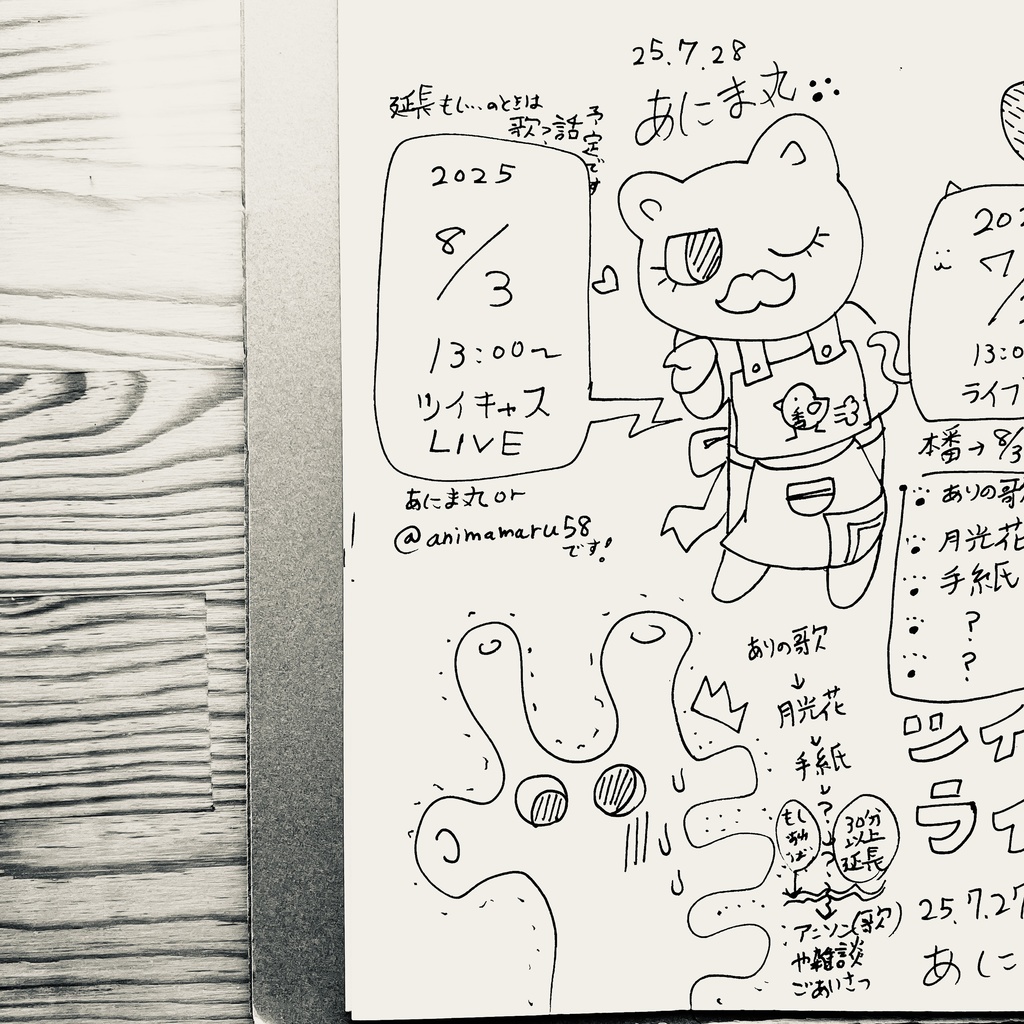 25.7.28
あにま丸
延長もし…のときは
歌?話
予定です
2025
8/3
13:00〜
ツイキャス
LIVE
あにま丸 or
@animamaru58
です!
ありの歌
↓
月光花
↓
手紙
↓
?
↓
?
もし
あれ
ば
30分
以上
延長
↓
アニソン(歌)
や雑談
ごあいさつ
202
7/
13:0
ライブ
本番→8/3
ありの歌
月光花
手紙
?
?
ツイ
ライ
25.7.27
あに